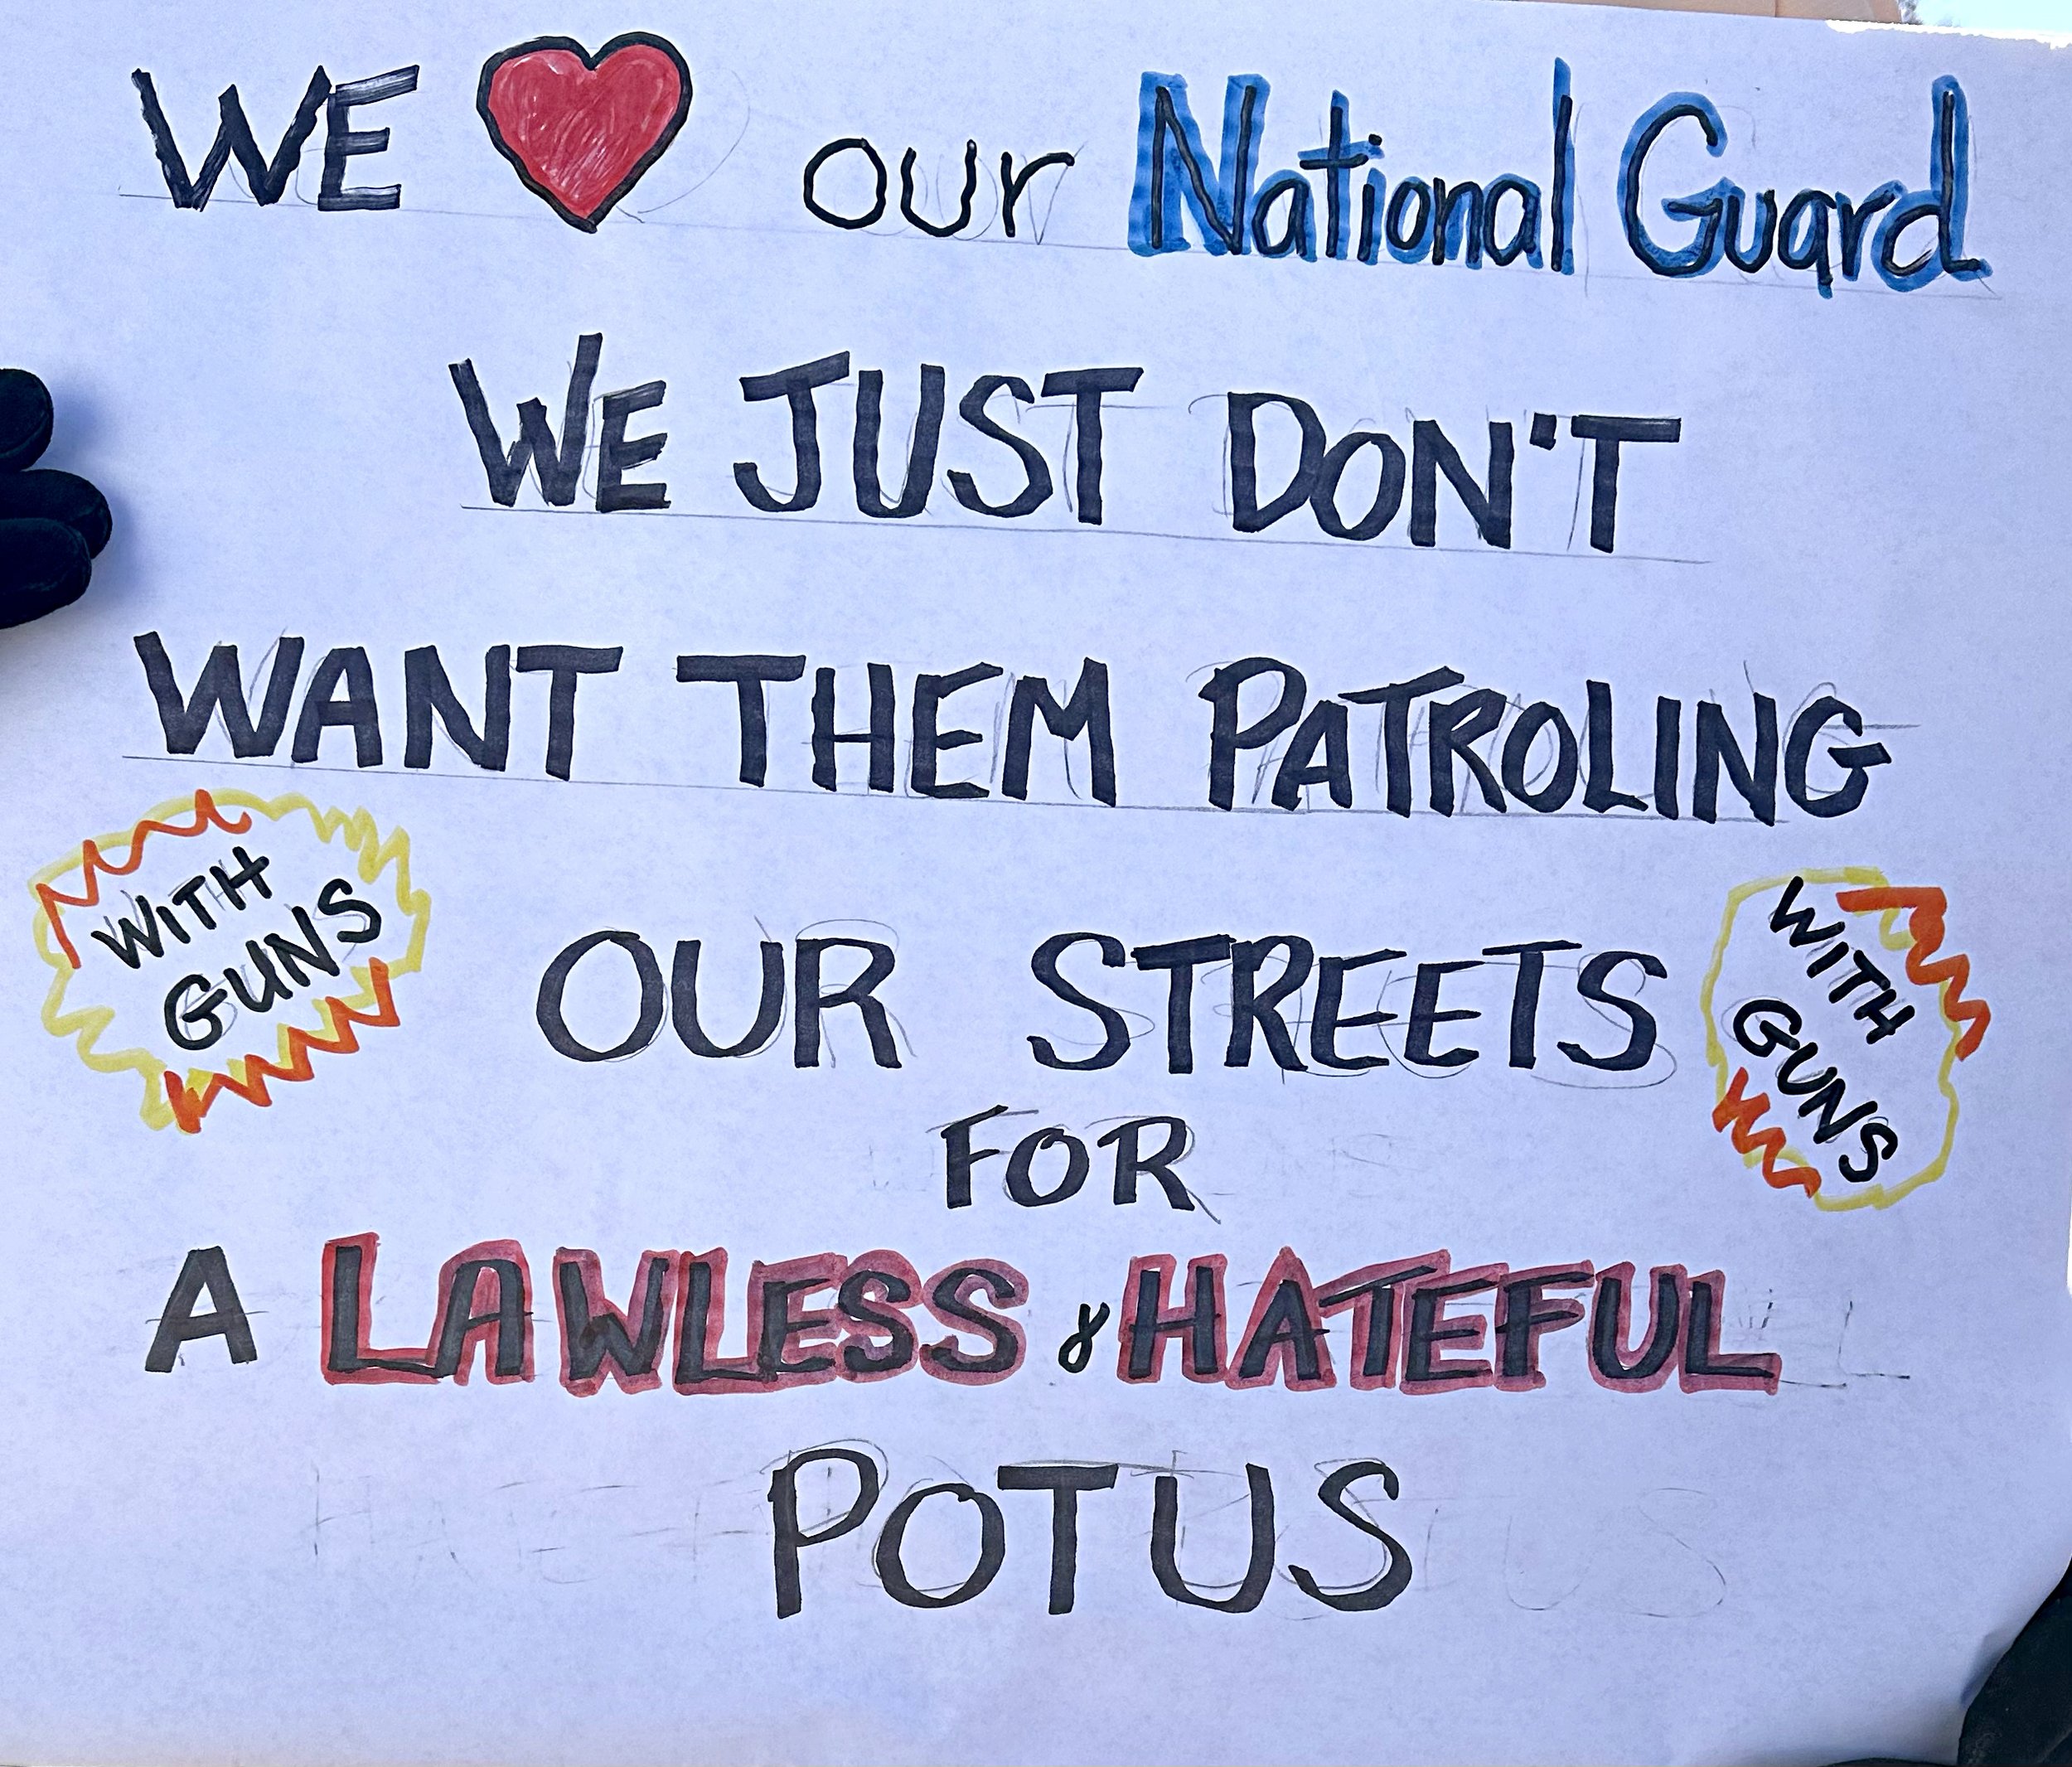 WE ❤ our National Guard
WE JUST DON'T
WANT THEM PATROLING
WITH
GUNS
OUR STREETS
WITH
GUNS
FOR
A LAWLESS & HATEFUL
POTUS